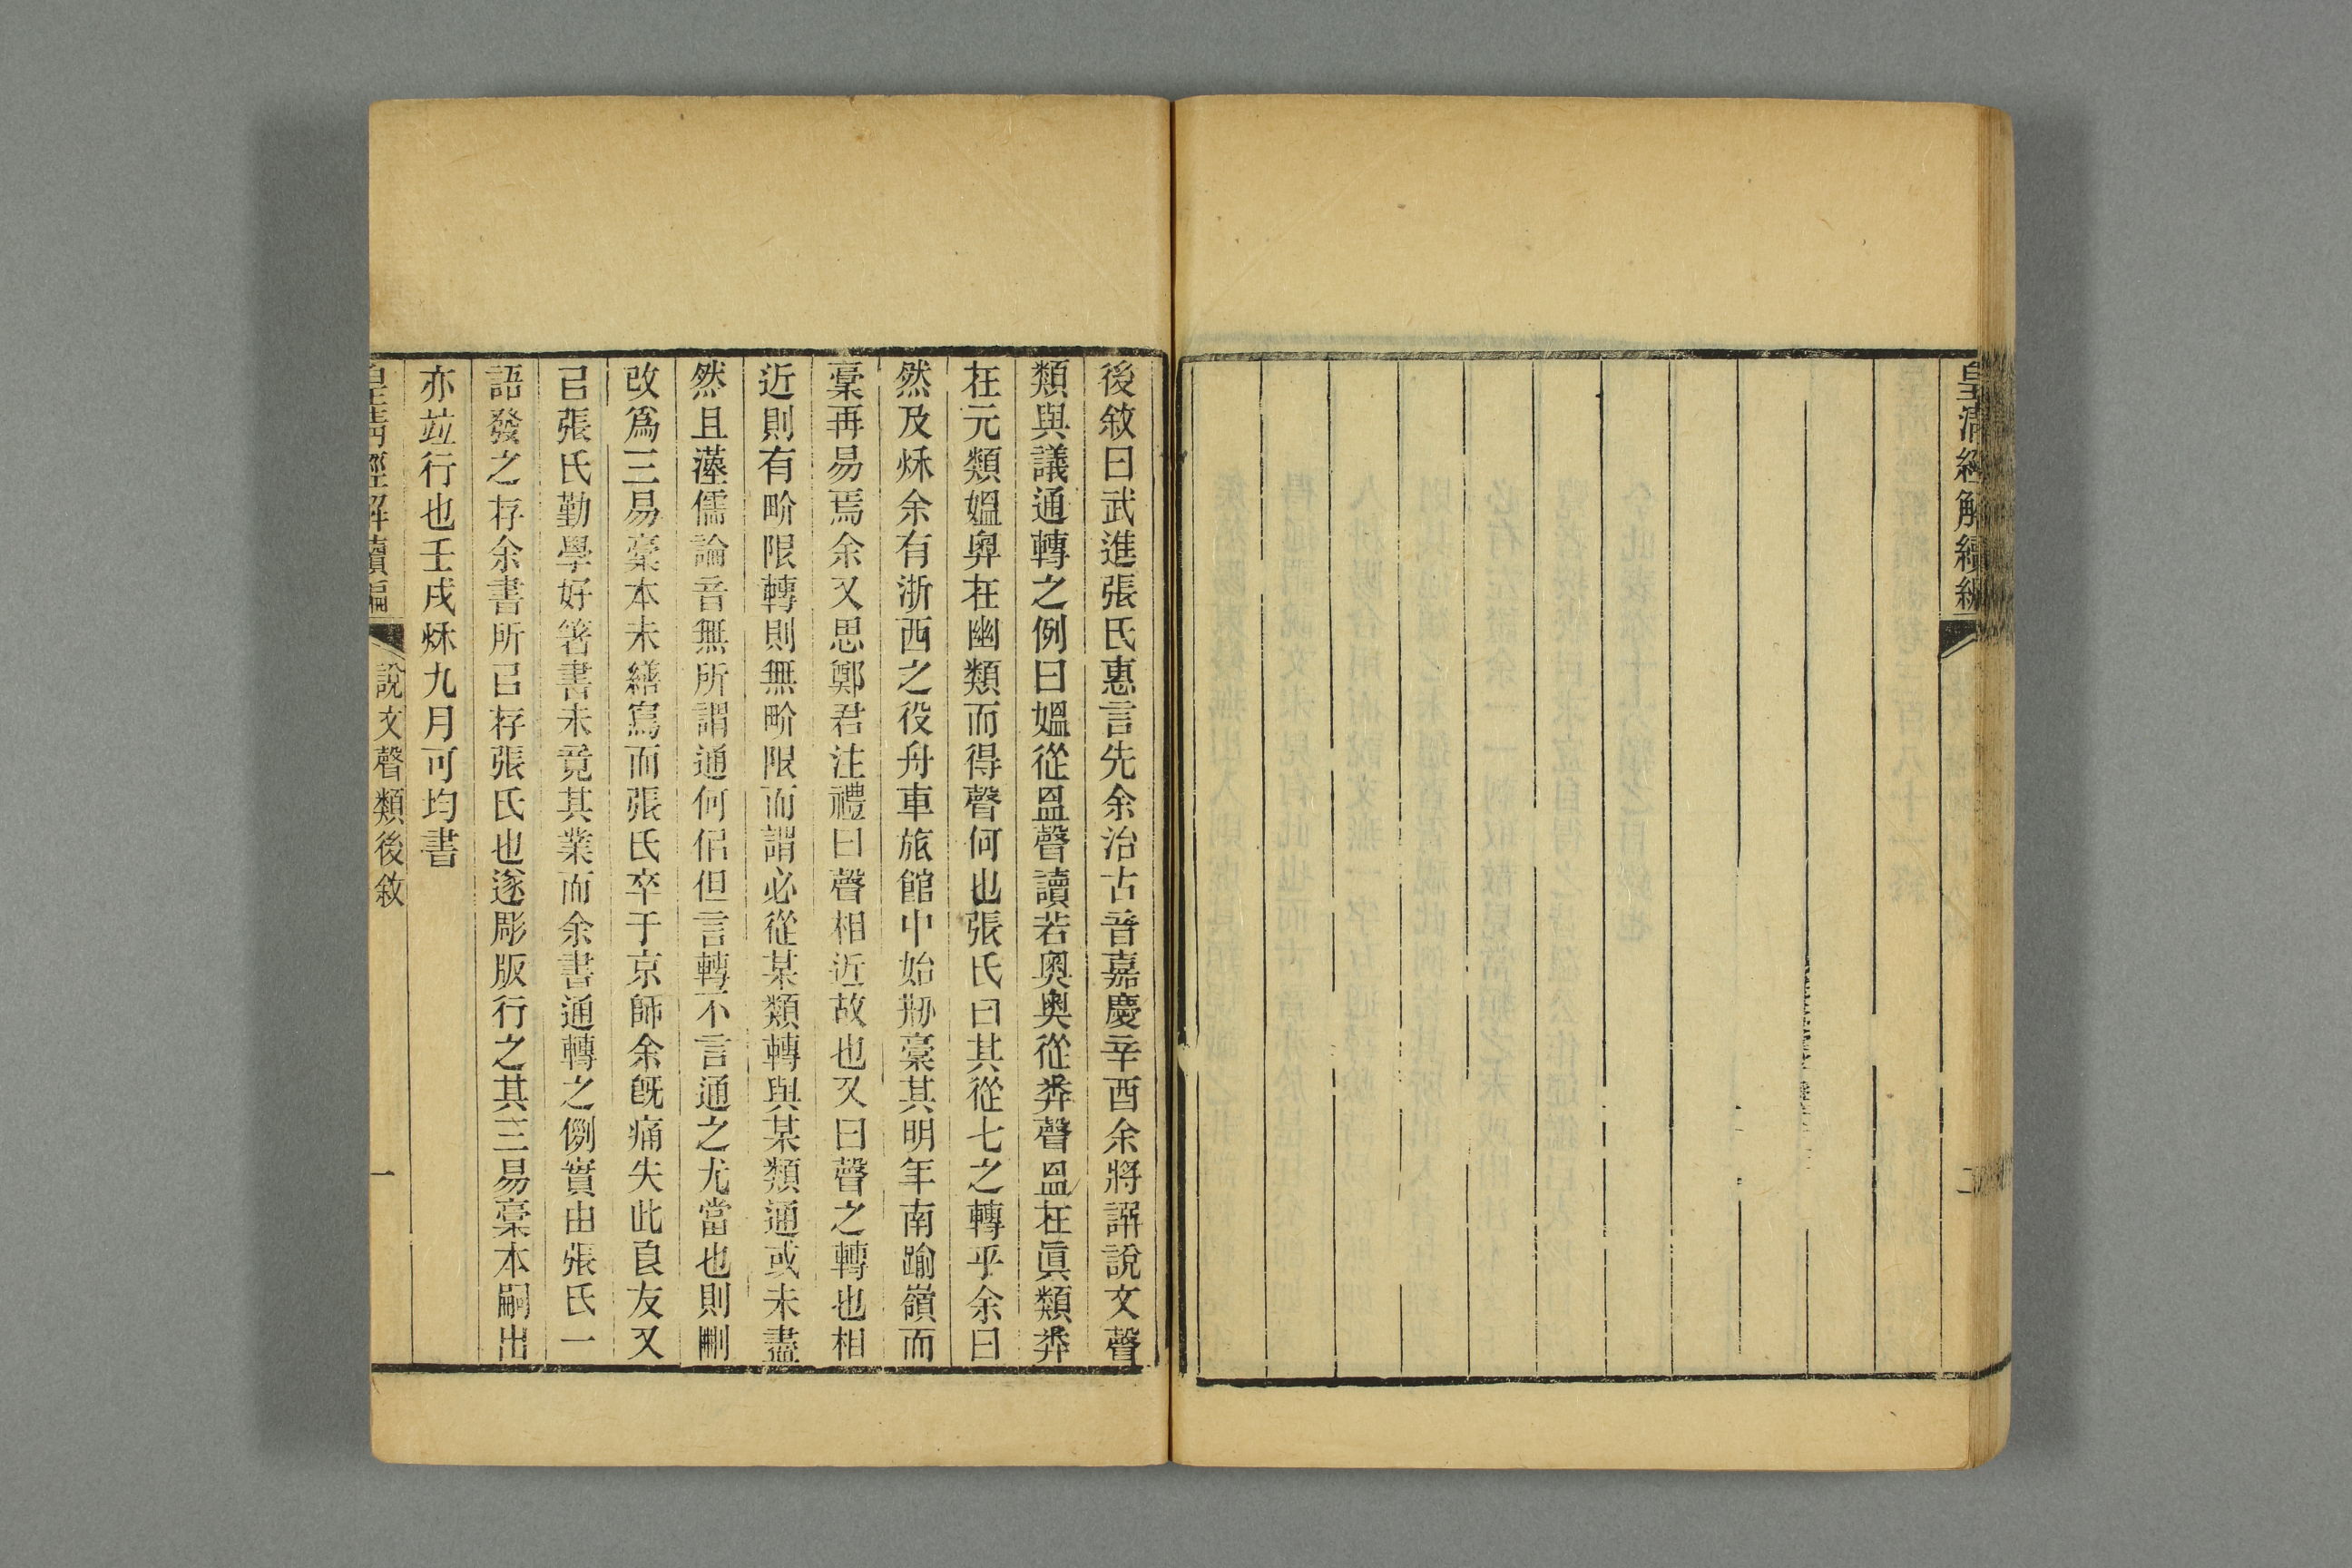 皇清經解續編
二
後敘曰武進張氏惠言先余治古音嘉慶辛酉余將譔說文聲
類與議通轉之例曰媼從𥁕聲讀若奧奧從𢍏聲𥁕在眞類𢍏
在元類媼奧在幽類而得聲何也張氏曰其從七之轉乎余曰
然及烁余有浙西之役舟車旅館中始剏稾其明年南踰嶺而
稾再易焉余又思鄭君注禮曰聲相近故也又曰聲之轉也相
近則有畍限轉則無畍限而謂必從某類轉與某類通或未盡
然且漢儒論音無所謂通何侶但言轉不言通之尤當也則刪
改爲三易稾本未繕寫而張氏卒于京師余旣痛失此良友又
㠯張氏勤學好箸書未竟其業而余書通轉之例實由張氏一
語發之存余書所㠯存張氏也遂彫版行之其三易稾本嗣出
亦竝行也壬戌烁九月可均書
皇清經解續編
說文聲類後敘
一